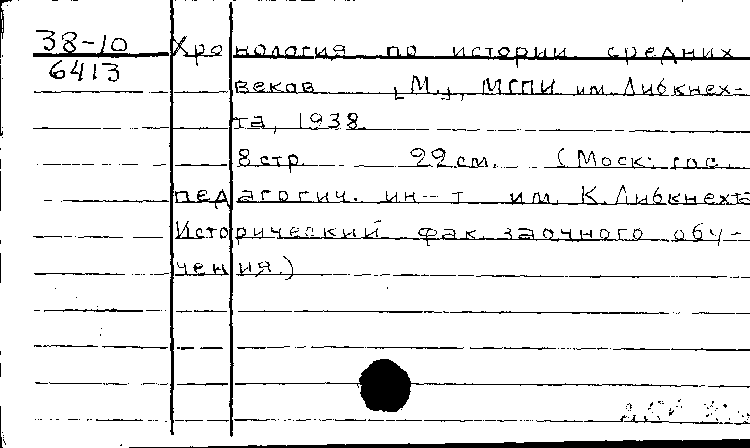 38-10
6413
Хронология по истории средних
веков [М.], МГПИ им. Либкнех-
та, 1938.
8 стр. 22 см. (Моск. гос.
педагогич. ин-т им. К. Либкнехта
Исторический фак. заочного обу-
чения.)